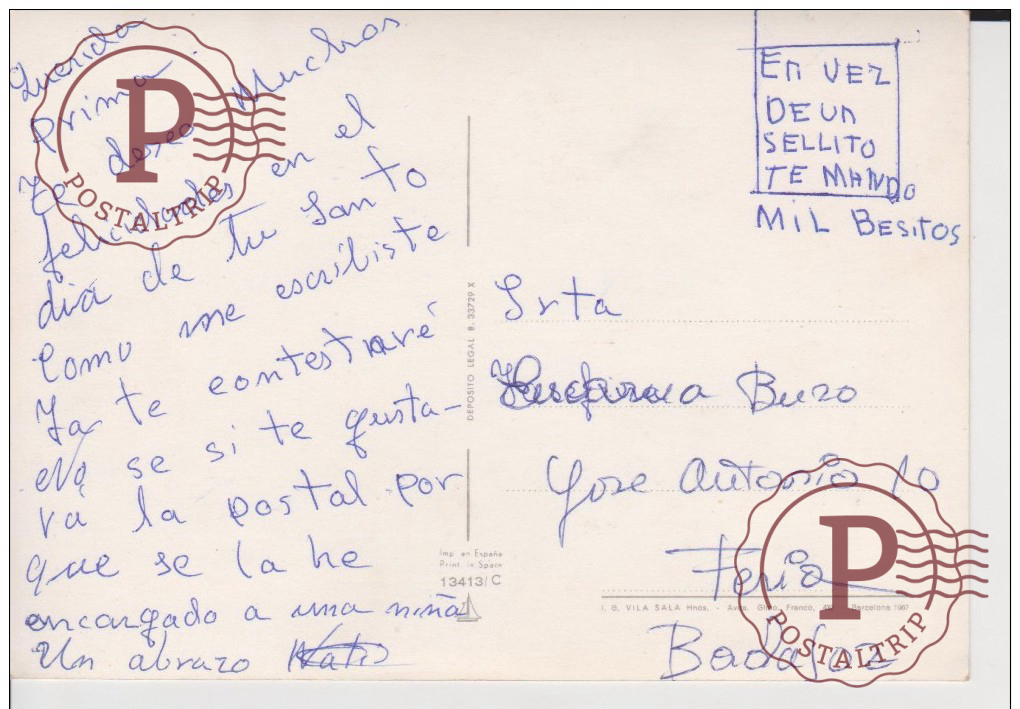 Querida
Prima.
Te deseo Muchas
felicidades en el
dia de tu San to
Como me escribiste
Ya te contestraré
No se si te gusta-
ra la postal por
que se la he
encargado a una niña
Un abrazo
En VEZ
DE Un
SELLITO
TE MANDO
MIL BESITOS
Srta
Buzo
Jose Antonio 10
Feria
Badajoz
DEPOSITO LEGAL B. 33729 X
Imp. en España
Print. in Spain
13413/C
I. G. VILA SALA Hnos. - Avda. Glmo. Franco, Barcelona 1967
P
POSTALTRIP
P
POSTALTRIP